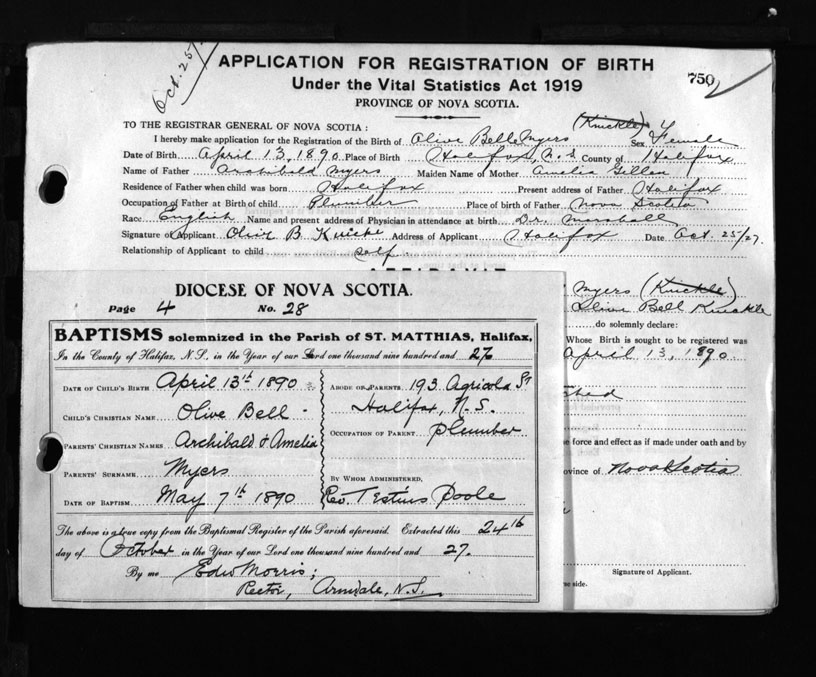 Oct. 25/
APPLICATION FOR REGISTRATION OF BIRTH
Under the Vital Statistics Act 1919
750
PROVINCE OF NOVA SCOTIA.
TO THE REGISTRAR GENERAL OF NOVA SCOTIA :
(Knickle)
I hereby make application for the Registration of the Birth of Olive Belle Myers Sex Female
Date of Birth April 13, 1890 Place of Birth Halifax, N.S County of Halifax
Name of Father Archibald Myers Maiden Name of Mother Amelia
Residence of Father when child was born Halifax Present address of Father Halifax
Occupation of Father at Birth of child Plumber Place of birth of Father Nova Scotia
Race English Name and present address of Physician in attendance at birth Dr. Marshall
Signature of Applicant Olive B. Address of Applicant Halifax Date Oct. 25/27.
Relationship of Applicant to child self
Myers (Knickle)
Olive Bell Knickle
do solemnly declare:
Whose Birth is sought to be registered was
April 13, 1890
e force and effect as if made under oath and by
vince of Nova Scotia
Signature of Applicant.
se side.
DIOCESE OF NOVA SCOTIA.
Page 4 No. 28
BAPTISMS solemnized in the Parish of ST. MATTHIAS, Halifax,
In the County of Halifax, N.S., in the Year of our Lord one thousand nine hundred and 27
DATE OF CHILD'S BIRTH April 13th 1890
CHILD'S CHRISTIAN NAME Olive Bell -
PARENTS' CHRISTIAN NAMES Archibald & Amelia
PARENTS' SURNAME Myers
DATE OF BAPTISM May 7th 1890
ABODE OF PARENTS 193 Agricola St
Halifax, N.S.
OCCUPATION OF PARENT Plumber
BY WHOM ADMINISTERED,
Rev. T. Poole
The above is a true copy from the Baptismal Register of the Parish aforesaid. Extracted this 24th
day of October in the Year of our Lord one thousand nine hundred and 27.
By me Edw Morris;
Rector, N.S.